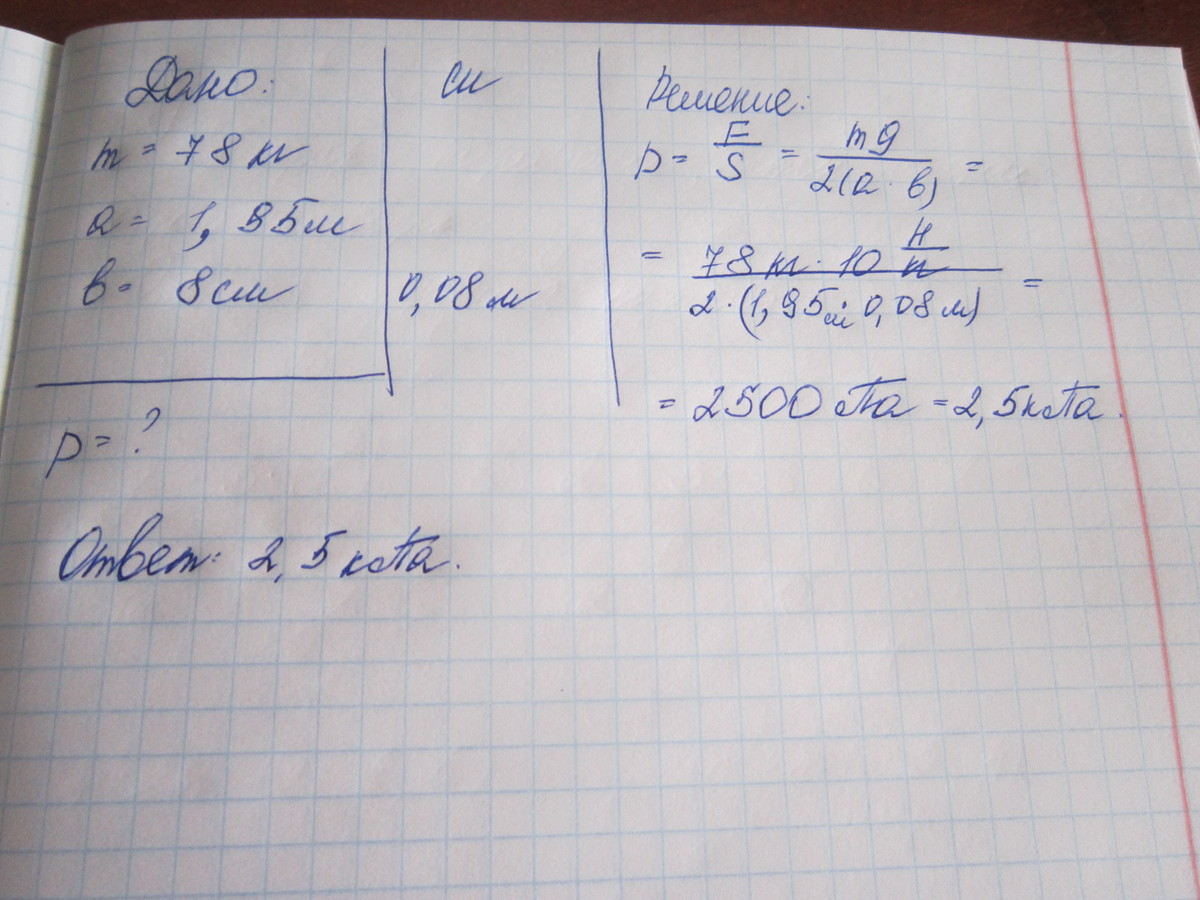 Дано:
m = 78 кг
a = 1,95м
в = 8см
p = ?
си
0,08 м
Решение:
p = F/S = mg/2(a · в) =
= 78 кг · 10 Н/кг / 2 · (1,95м · 0,08 м) =
= 2500 Па = 2,5кПа.
Ответ: 2,5 кПа.